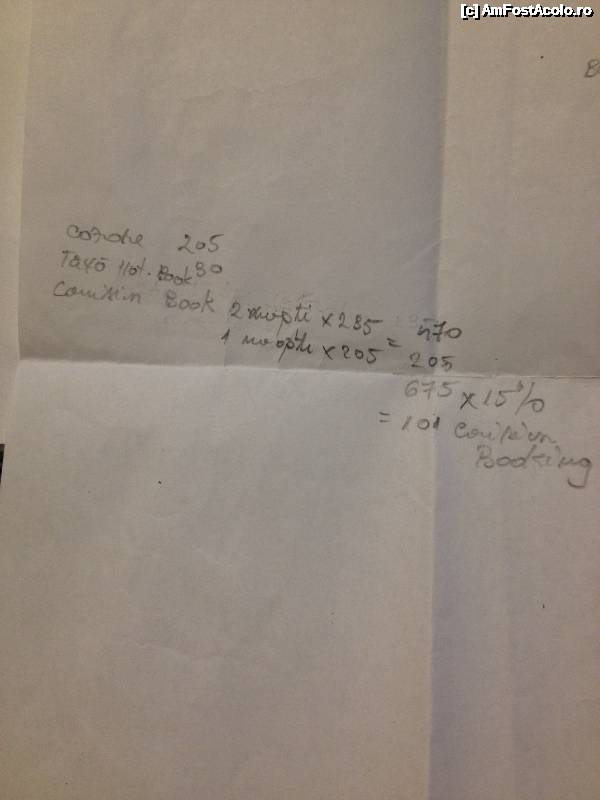 [c] AmFostAcolo.ro
8
cazare 205
Taxă Hot. Book 80
Comision Book 2 nopți x 285 = 570
1 noapte x 205 205
675 x 15%
= 101 Comision
Booking